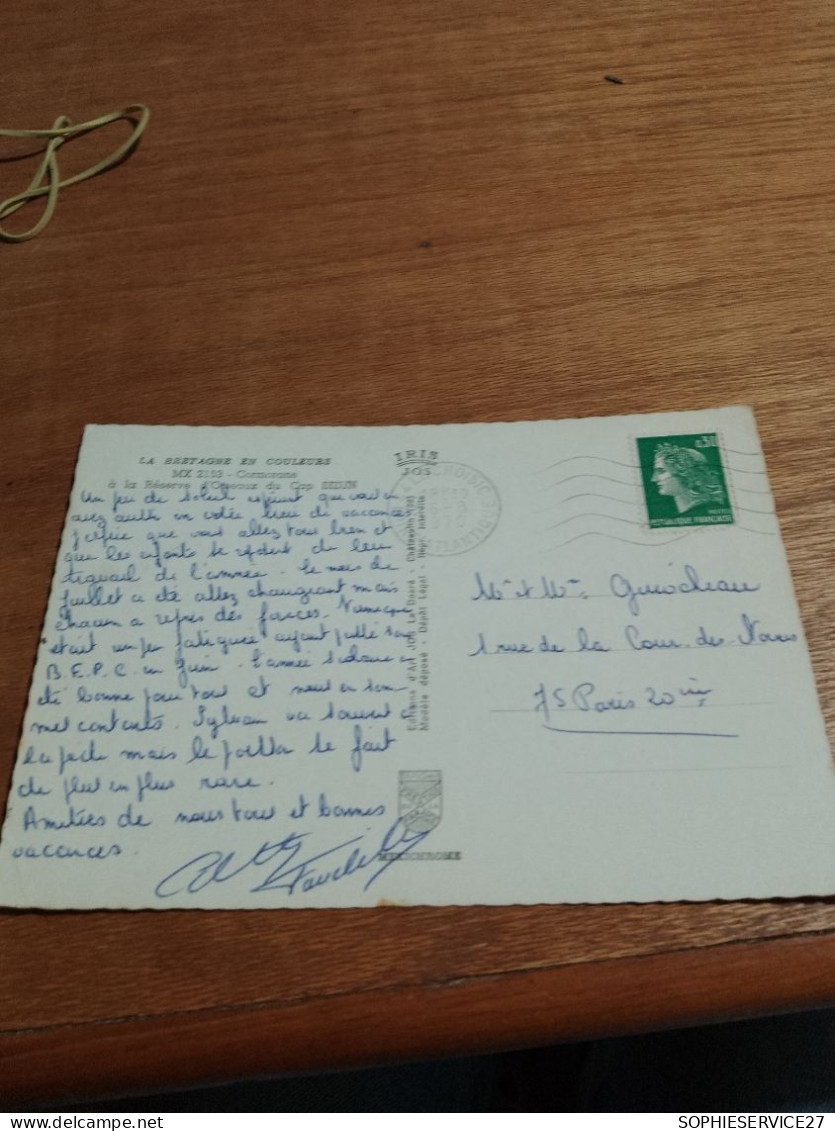 LA BRETAGNE EN COULEURS
MX 2152 - Cormorans
à la Réserve d'Oiseaux du Cap SIZUN
IRIS
JOS
Un peu de soleil espérant que vous en
avez aussi en votre lieu de vacances
J'espère que vous allez tous bien et
que les enfants se reposent de leur
travail de l'année. Le mois de
Juillet a été assez changeant mais
chacun a repris des forces.
était un peu fatiguée ayant passé son
B.E.P.C. en Juin. L'année scolaire a
été bonne pour tous et nous en sommes
contents. Sylvain va souvent à
la pêche mais le poisson se fait
de plus en plus rare.
Amitiés de nous tous et bonnes
vacances.
Editions d'Art JOS Le Doaré - Châteaulin
Modèle déposé - Dépôt Légal - Repr. interdite
MEXICHROME
LE CROISIC
LOIRE ATLANTIQUE
0,30
REPUBLIQUE FRANÇAISE
Mr et Mme
1 rue de la Cour des Noues
75 Paris 20ème
SOPHIESERVICE27